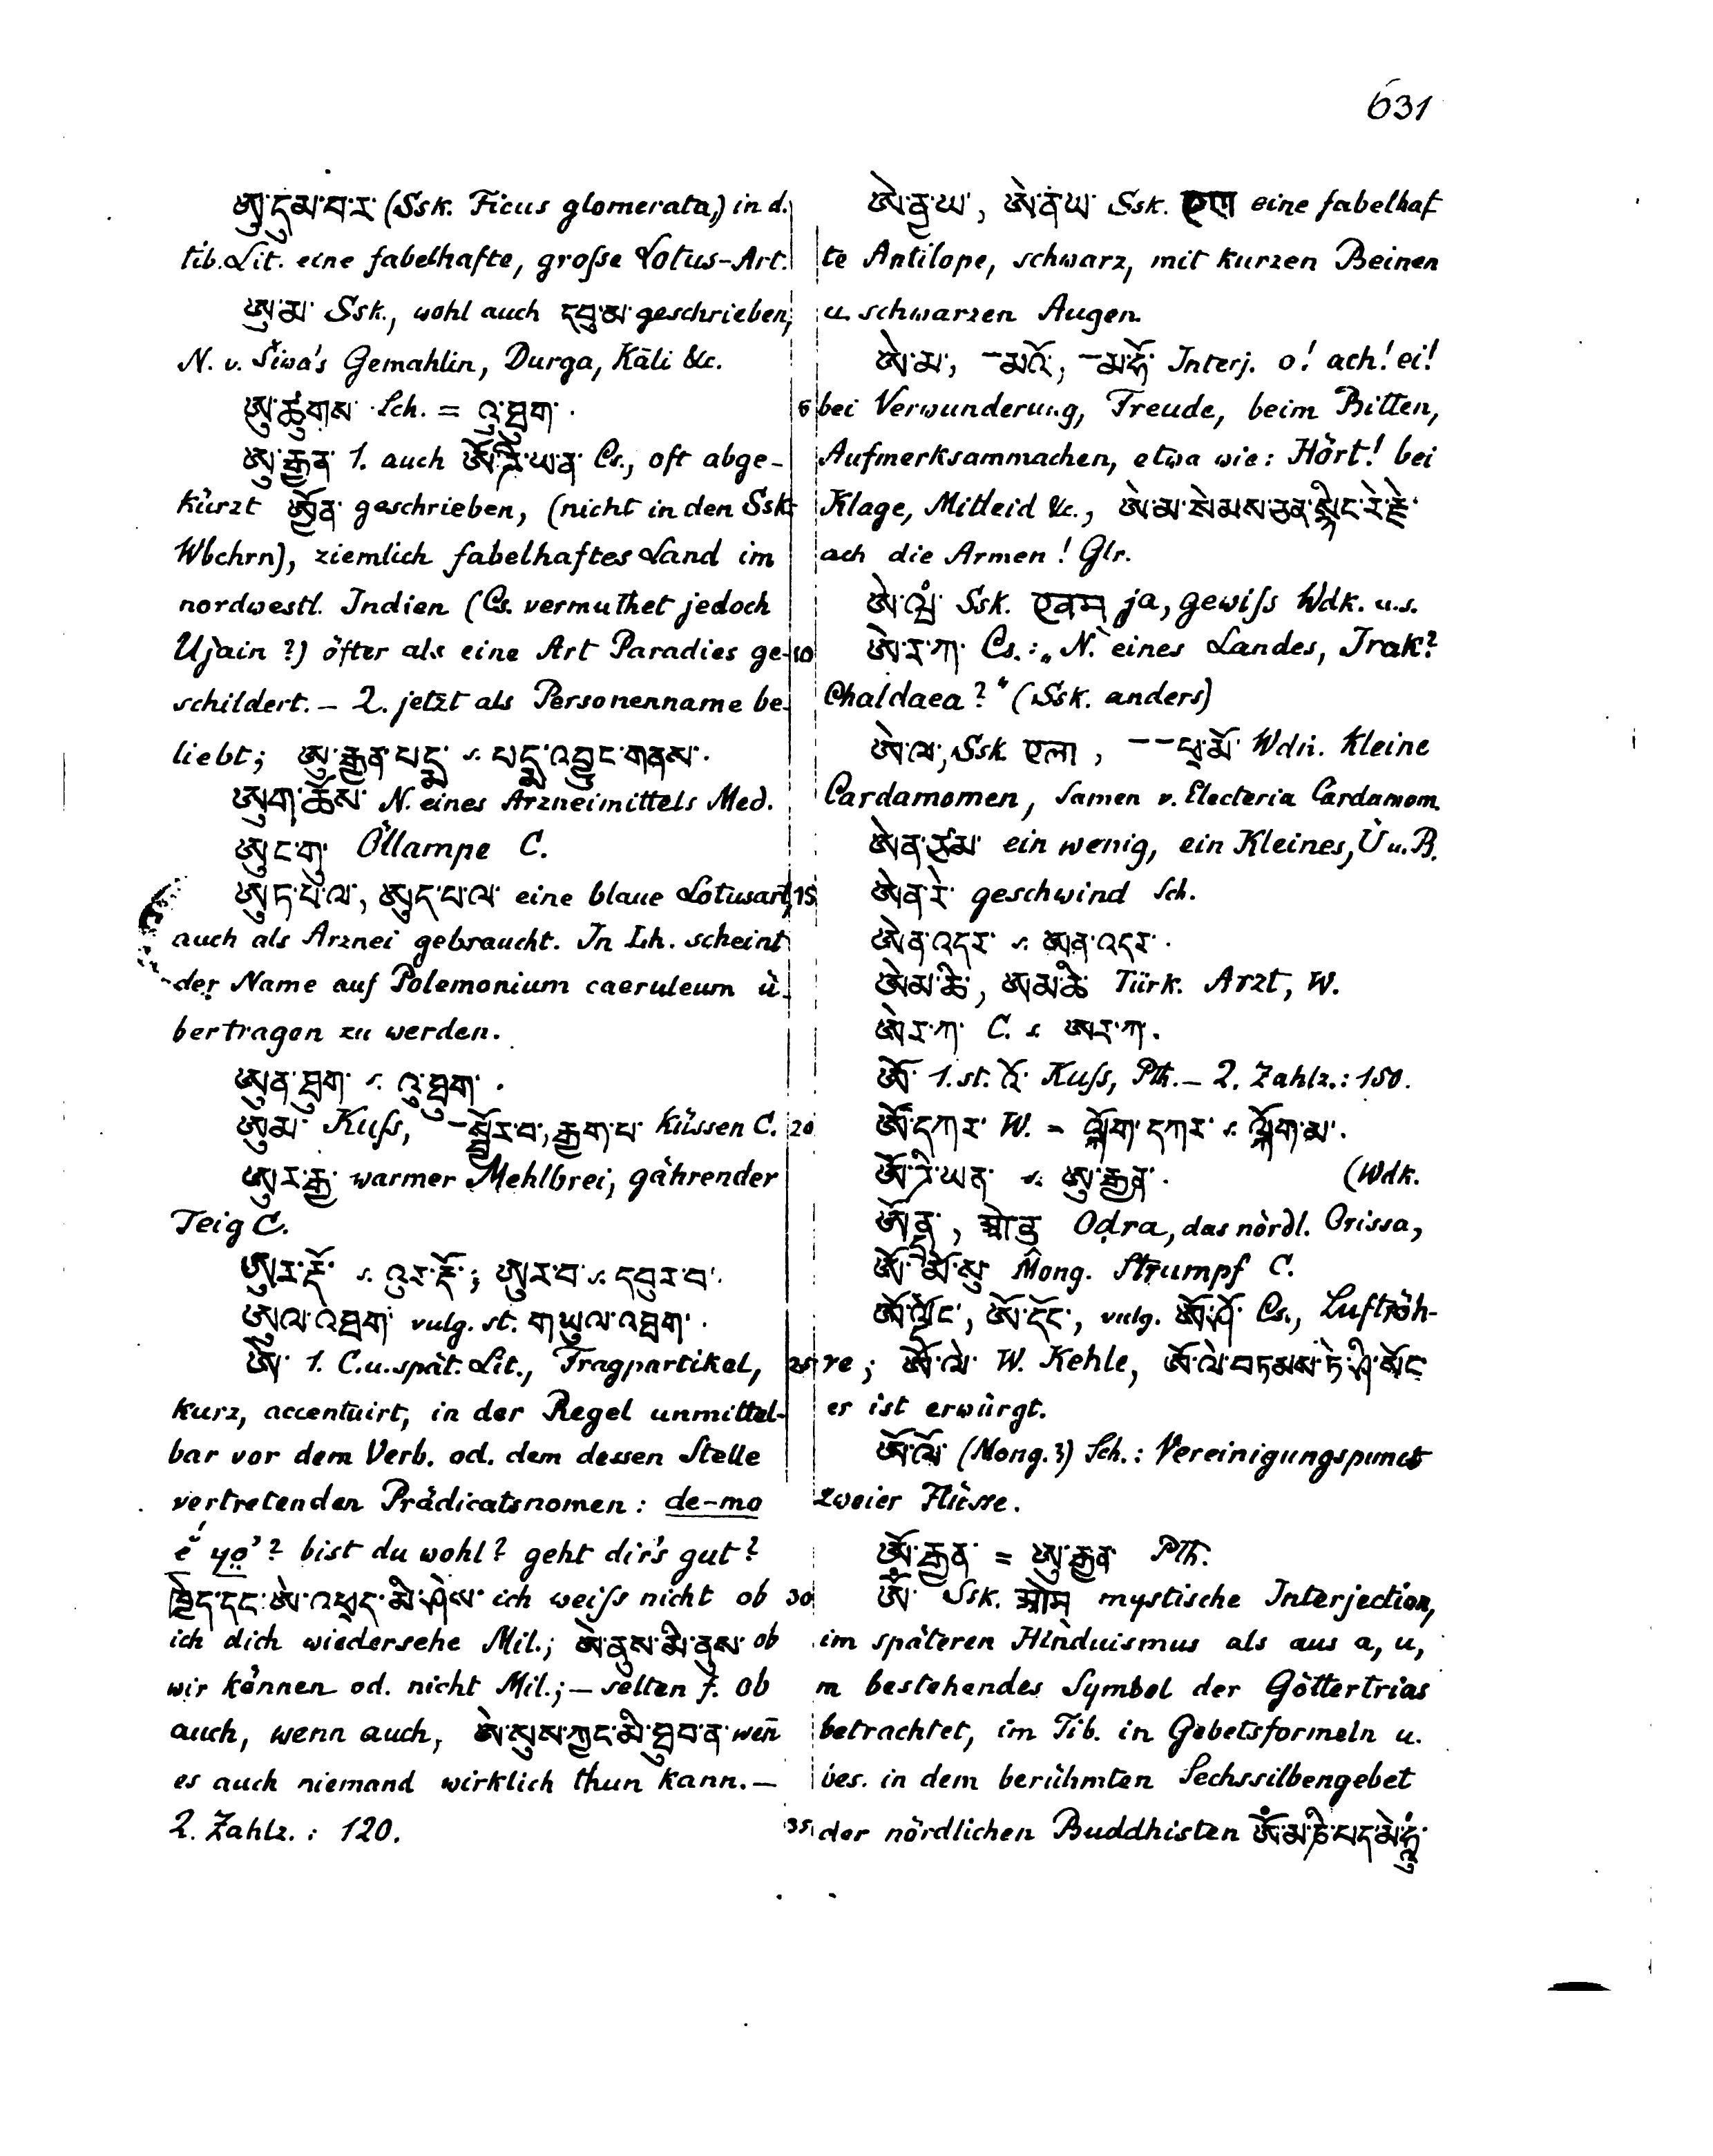 631
ཨུ་དུམ་བ་ར་ (Ssk. Ficus glomerata,) in d.
tib. Lit. eine fabelhafte, große Lotus-Art.
ཨུ་མ་ Ssk., wohl auch དབུ་མ་ geschrieben,
N. v. Śiwa's Gemahlin, Durga, Kāli &c.
ཨུ་ཚུགས་ Sch. = འུ་ཐུག་.
ཨུ་རྒྱན་ 1. auch ཨོ་ཌི་ཡན་ Cs., oft abge-
kürzt ཨོྱན་ geschrieben, (nicht in den Ssk
Wbchrn), ziemlich fabelhaftes Land im
nordwestl. Indien (Cs. vermuthet jedoch
Ujain?) öfter als eine Art Paradies ge-
schildert. – 2. jetzt als Personenname be-
liebt; ཨུ་རྒྱན་པདྨ་ s. པདྨ་འབྱུང་གནས་.
ཨུག་ཆོས་ N. eines Arzneimittels Med.
ཨུང་གུ་ Öllampe C.
ཨུཏ་པལ་, ཨུད་པལ་ eine blaue Lotusart,
auch als Arznei gebraucht. In Lh. scheint
der Name auf Polemonium caeruleum ü-
bertragen zu werden.
ཨུན་ཐུག་ s. འུ་ཐུག་.
ཨུམ་ Kuß, –སྦྱོར་བ་, རྒྱག་པ་ küssen C.
ཨུར་རྒྱ་ warmer Mehlbrei, gährender
Teig C.
ཨུར་རྡོ་ s. འུར་རྡོ་; ཨུར་བ་ s. དབུར་བ་.
ཨུལ་འཐག་ vulg. st. གཡུལ་འཐག་.
ཨེ་ 1. C. u. spät. Lit., Fragpartikel,
kurz, accentuirt, in der Regel unmittel-
bar vor dem Verb. od. dem dessen Stelle
vertretenden Prädicatsnomen: de-mo
é yọ̈'? bist du wohl? geht dir's gut?
ཁྱེད་དང་ཨེ་འཕྲད་མི་ཤེས་ ich weiß nicht ob
ich dich wiedersehe Mil.; ཨེ་ནུས་མི་ནུས་ ob
wir können od. nicht Mil.; – selten f. ob
auch, wenn auch, ཨེ་སུས་ཀྱང་མི་ཐུབ་ན་ wen̄
es auch niemand wirklich thun kann. –
2. Zahlz.: 120.
ཨེ་ནྱ་ཡ་, ཨེ་ནེ་ཡ་ Ssk. एण eine fabelhaf
te Antilope, schwarz, mit kurzen Beinen
u. schwarzen Augen.
ཨེ་མ་, –མའོ་, –མ་ཧོ་ Interj. o! ach! ei!
5 bei Verwunderung, Freude, beim Bitten,
Aufmerksammachen, etwa wie: Hört! bei
Klage, Mitleid &c., ཨེ་མ་སེམས་ཅན་སྙིང་རེ་རྗེ་
ach die Armen! Glr.
ཨེ་ཝཾ་ Ssk. एवम् ja, gewiß Wdk. u. s.
10 ཨེ་ར་ཀ་ Cs.: „N. eines Landes, Irak?
Chaldaea?“ (Ssk. anders)
ཨེ་ལ་, Ssk एला, ––ཕྲ་མོ་ Wdn. kleine
Cardamomen, Samen v. Electeria Cardamom.
ཨེན་ཙམ་ ein wenig, ein Kleines, Ü u. B.
15 ཨེན་རེ་ geschwind Sch.
ཨེན་འདར་ s. ཨན་འདར་.
ཨེམ་ཆི་, ཨམ་ཆི་ Türk. Arzt, W.
ཨེར་ཀ་ C. s. ཨར་ཀ་.
ཨོ་ 1. st. འོ་ Kuß, Pth. – 2. Zahlz.: 150.
20 ཨོ་དཀར་ W. = ལྐོག་དཀར་ s. ལྐོག་མ་.
ཨོ་ཌི་ཡན་ s. ཨུ་རྒྱན་. (Wdk.
ཨོ་ Oḍra, das nördl. Orissa,
ཨོ་མོ་སུ་ Mong. Strumpf C.
ཨོ་ལྡོང་, ཨོ་དོང་, vulg. Cs., Luftröh-
25 re; ཨོ་ལེ་ W. Kehle, ཨོ་ལེ་བཏམས་ཏེ་ཤི་སོང་
er ist erwürgt.
ཨོ་ལོ་ (Mong.?) Sch.: Vereinigungspunct
zweier Flüsse.
ཨོ་རྒྱན་ = ཨུ་རྒྱན་ Pth.
30 ཨོཾ་ Ssk. ओम् mystische Interjection,
im späteren Hinduismus als aus a, u,
m bestehendes Symbol der Göttertrias
betrachtet, im Tib. in Gebetsformeln u.
bes. in dem berühmten Sechssilbengebet
35 der nördlichen Buddhisten ཨོཾ་མ་ཎི་པད་མེ་ཧཱུྃ་